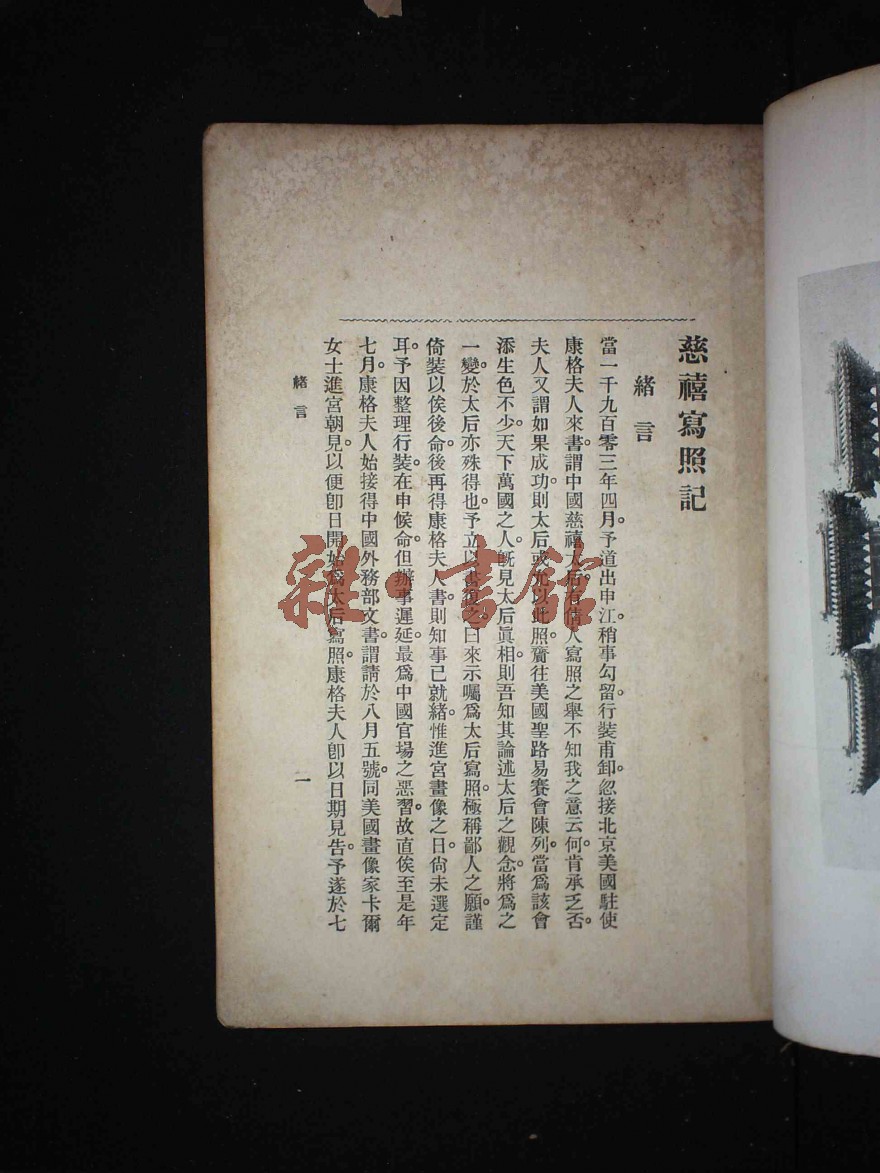 慈禧寫照記
緒言
當一千九百零三年四月。予道出申江。稍事勾留。行裝甫卸。忽接北京美國駐使
康格夫人來書。謂中國慈禧太后。有倩人寫照之舉。不知我之意云何。肯承乏否。
夫人又謂如果成功。則太后或允以此照齎往美國聖路易賽會陳列。當爲該會
添生色不少。天下萬國之人。旣見太后眞相。則吾知其論述太后之觀念。將爲之
一變。於太后亦殊得也。予立以書復之曰。來示囑爲太后寫照。極稱鄙人之願。謹
倚裝以俟後命。後再得康格夫人書。則知事已就緒。惟進宮畫像之日。尙未選定
耳。予因整理行裝。在申候命。但辦事遲延。最爲中國官場之惡習。故直俟至是年
七月。康格夫人始接得中國外務部文書。謂請於八月五號。同美國畫像家卡爾
女士進宮朝見。以便卽日開始爲太后寫照。康格夫人卽以日期見告。予遂於七
緒言
一
雜书館